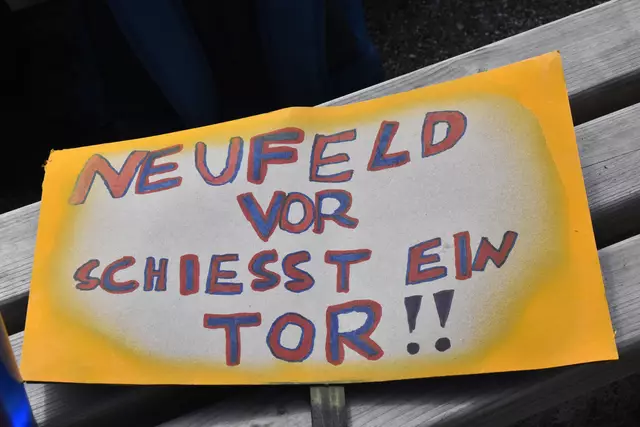 NEUFELD
VOR
SCHIESST EIN
TOR!!